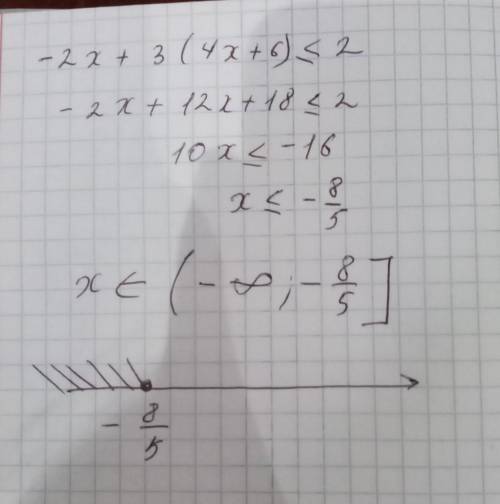 -2x + 3(4x+6) ≤ 2
-2x + 12x + 18 ≤ 2
10x ≤ -16
x ≤ -8/5
x ∈ (-∞; -8/5]
-8/5